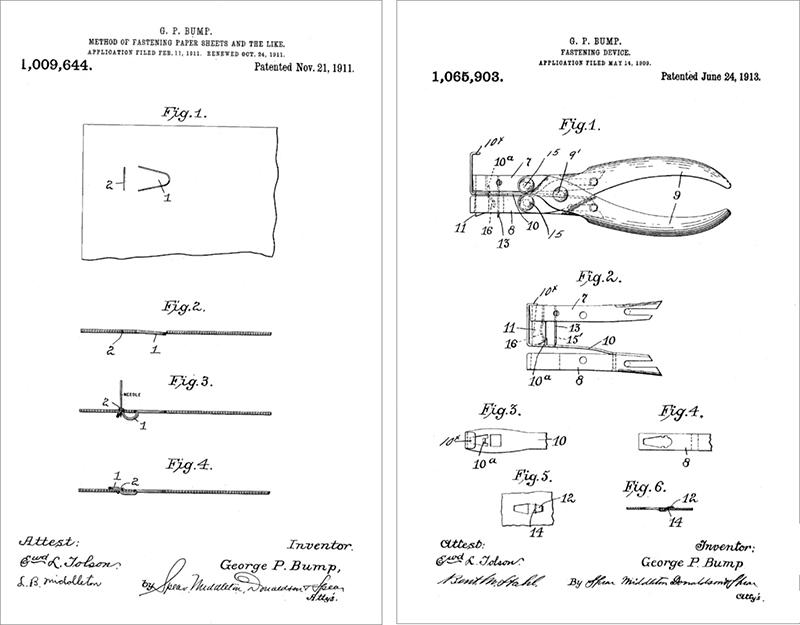 G. P. BUMP.
METHOD OF FASTENING PAPER SHEETS AND THE LIKE.
APPLICATION FILED FEB. 11, 1911. RENEWED OCT. 24, 1911.
1,009,644.
Patented Nov. 21, 1911.
Fig.1.
2
1
Fig.2.
2
1
Fig.3.
NEEDLE
2
1
Fig.4.
1
2
Attest:
Ewd L. Tolson.
L.B. Middleton
Inventor.
George P. Bump,
by Spear, Middleton, Donaldson & Spear
Att'ys.
G. P. BUMP.
FASTENING DEVICE.
APPLICATION FILED MAY 14, 1909.
1,065,903.
Patented June 24, 1913.
Fig.1.
10x
10a
7
15
9'
9
11
16
13
8
10
15
Fig.2.
10x
7
11
13
16
15'
10
10a
8
Fig.3.
10x
10
10a
Fig.4.
8
Fig.5.
12
14
Fig.6.
12
14
Attest:
Ewd L. Tolson.
Inventor:
George P. Bump
By Spear Middleton Donaldson & Spear
Att'ys.